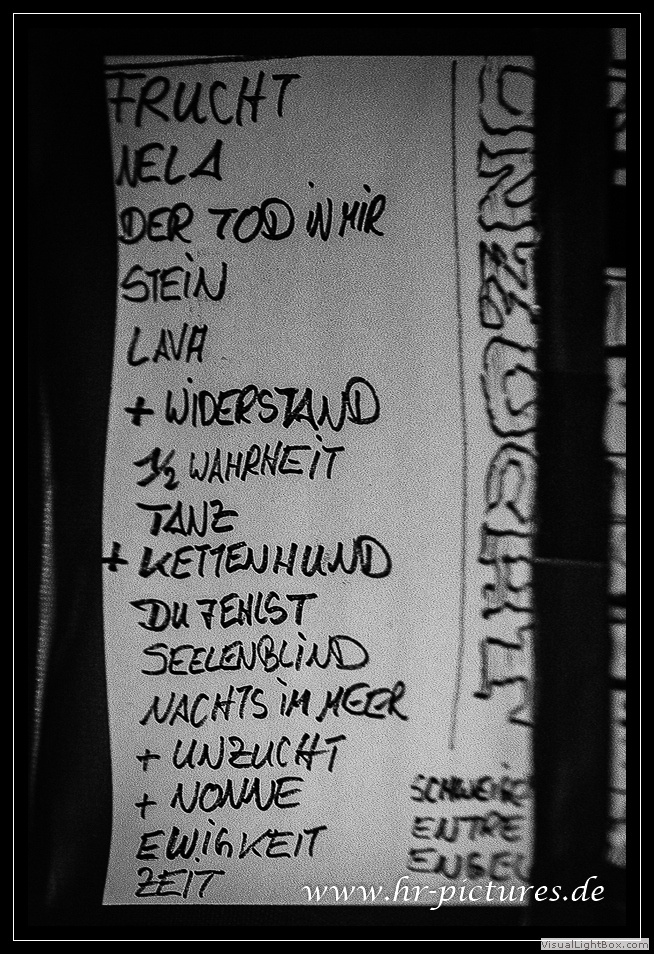 FRUCHT
NELA
DER TOD IN MIR
STEIN
LAVA
+ WIDERSTAND
1/2 WAHRHEIT
TANZ
+ KETTENHUND
DU FEHLST
SEELENBLIND
NACHTS IM MEER
+ UNZUCHT
+ NONNE
EWIGKEIT
ZEIT
ENTRE
ENGEL
www.hr-pictures.de
VisualLightBox.com